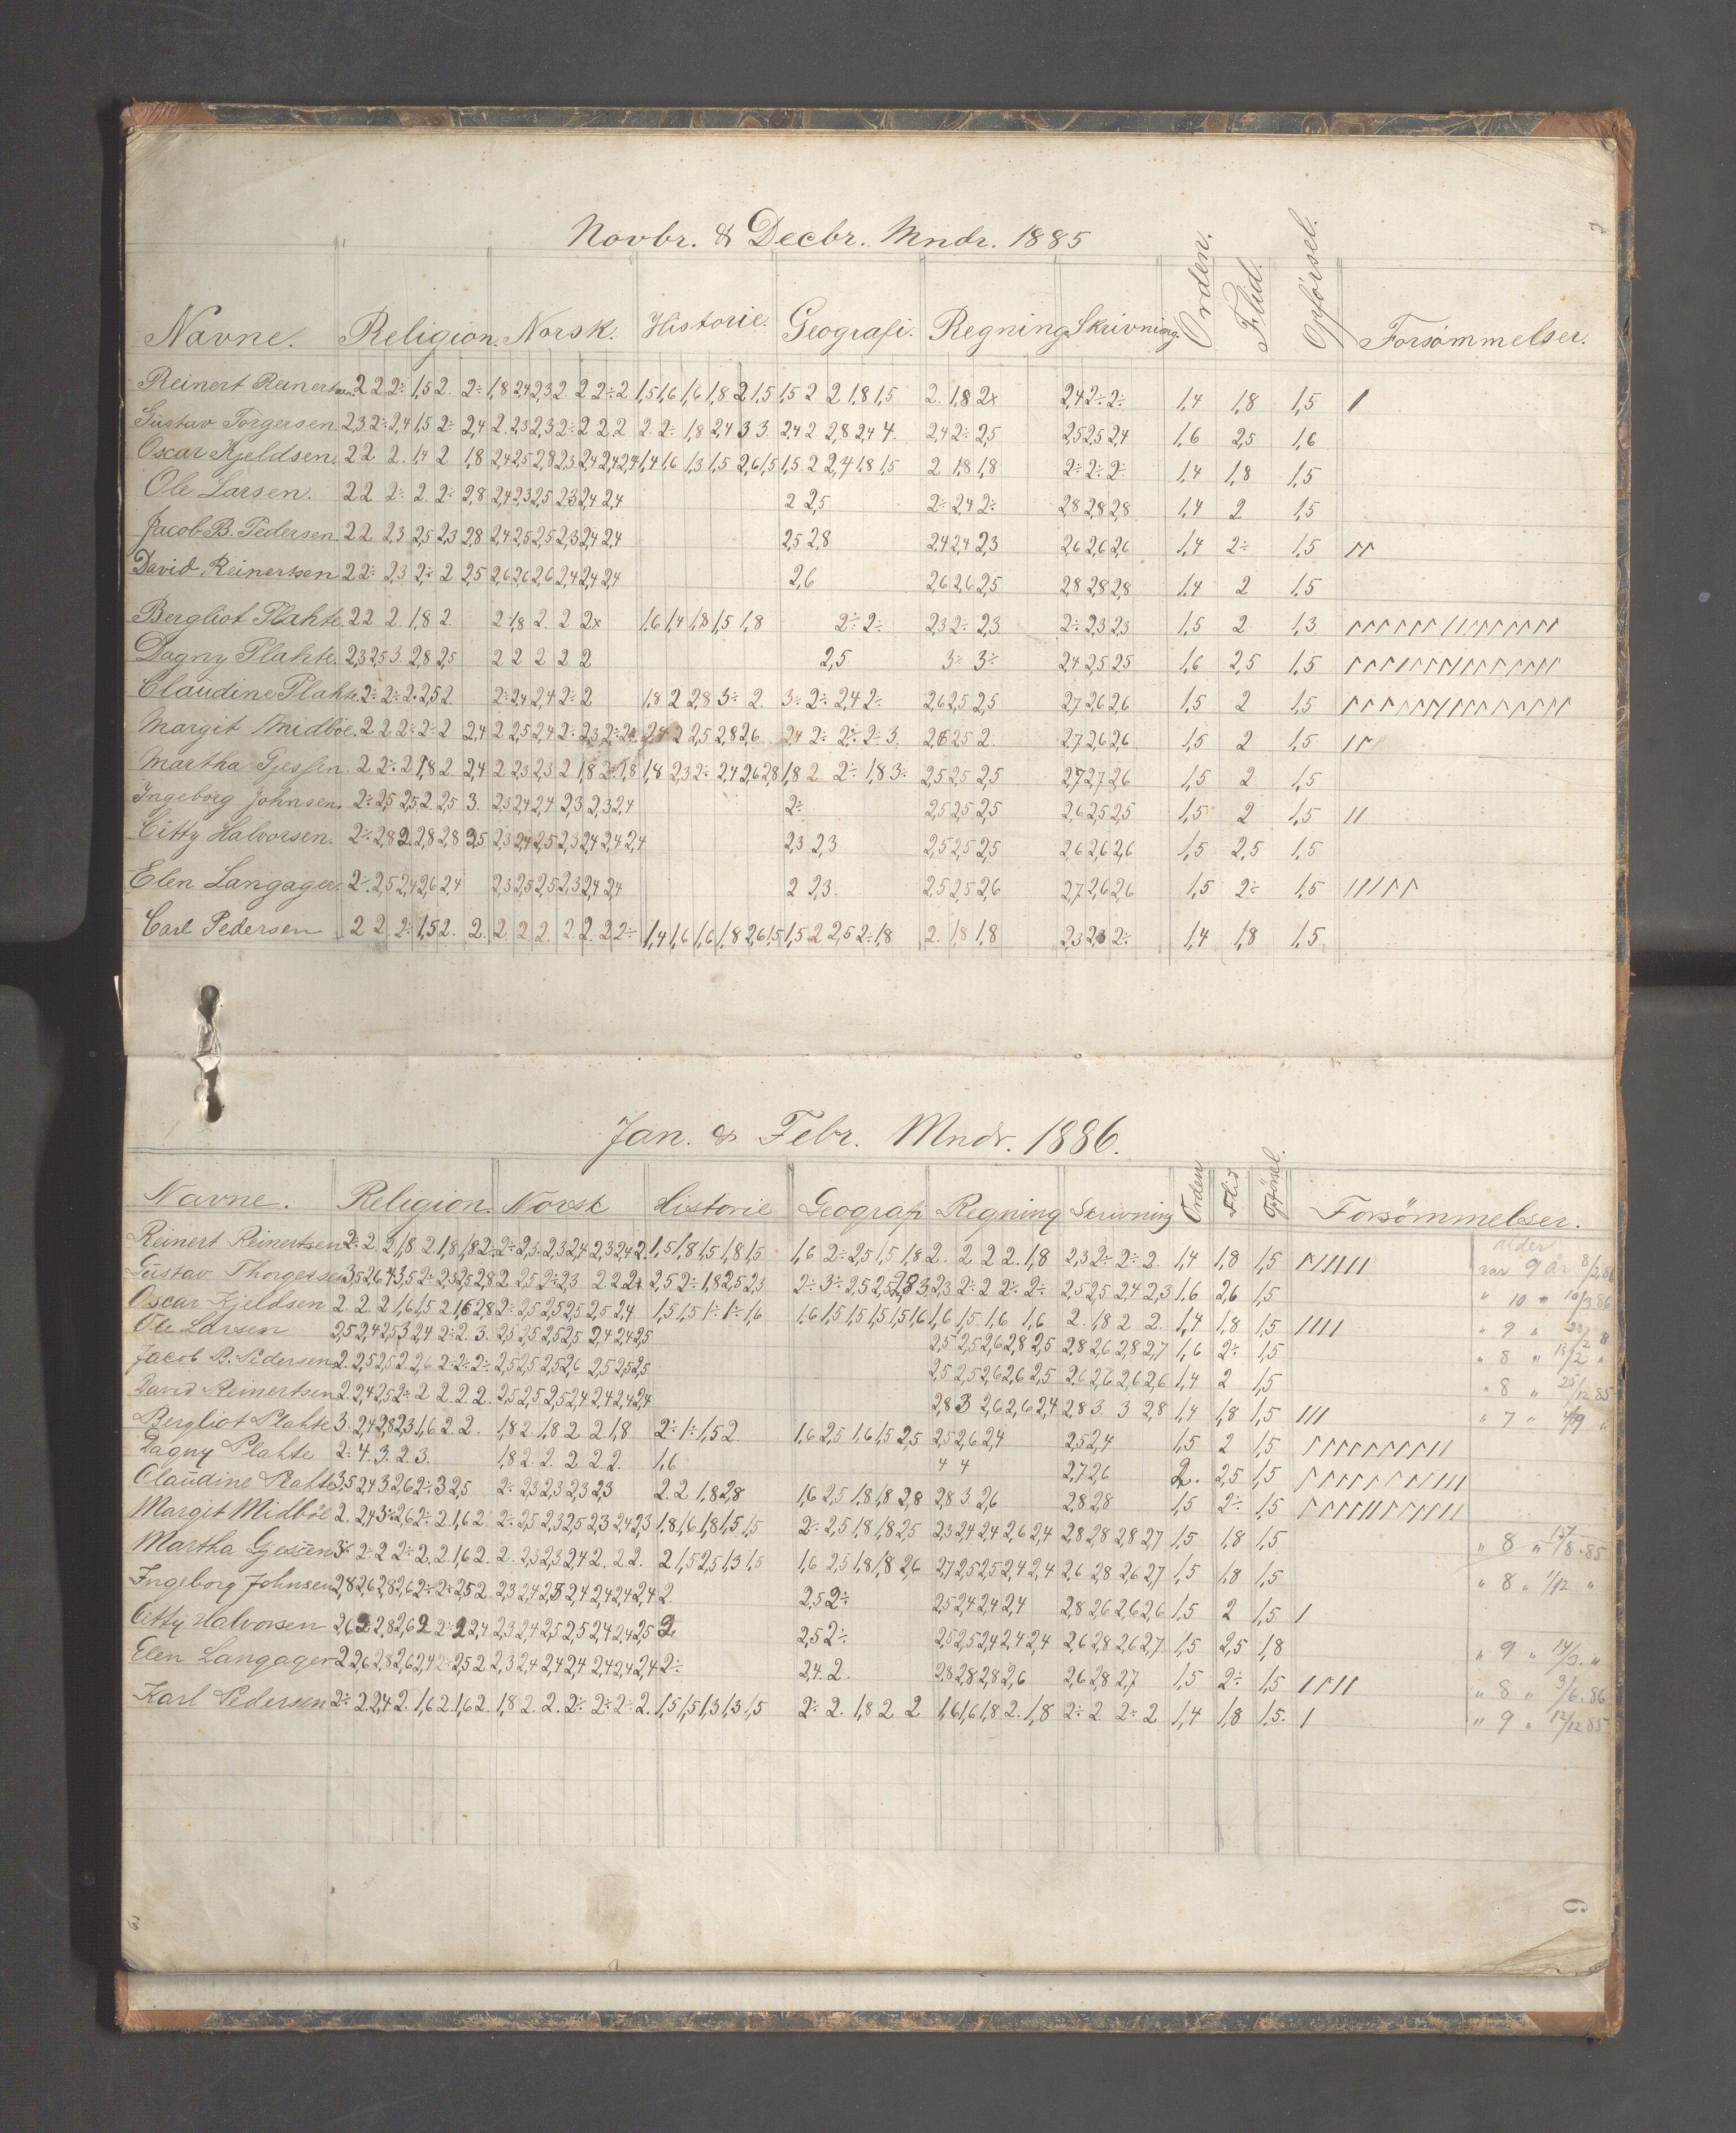 Novbr. & Decbr. Mndr. 1885
Navne. Religion. Norsk. Historie. Geografi. Regning Skrivning. Orden. Flid. Opførsel. Forsømmelser.
Reinert Reinertsen. 2 2 2÷ 1,5 2. 2÷ 1,8 2,4 2,3 2. 2 2÷ 2 1,5 1,6 1,6 1,8 2 1,5 1,5 2 2 1,8 1,5 2. 1,8 2x 2,4 2÷ 2÷ 1,4 1,8 1,5
Gustav Torgersen. 2,3 2÷ 2,4 1,5 2÷ 2,4 2. 2,3 2,3 2÷ 2 2 2 2. 2÷ 1,8 2,4 3 3. 2,4 2 2,8 2,4 4. 2,4 2÷ 2,5 2,5 2,5 2,4 1,6 2,5 1,6
Oscar Kjeldsen. 2 2 2. 1,4 2 1,8 2,4 2,5 2,8 2,3 2,4 2,4 2,4 1,4 1,6 1,3 1,5 2,6 1,5 1,5 2 2,4 1,8 1,5 2 1,8 1,8 2÷ 2÷ 2÷ 1,4 1,8 1,5
Ole Larsen. 2 2 2÷ 2. 2÷ 2,8 2,4 2,3 2,5 2,3 2,4 2,4 2 2,5 2÷ 2,4 2÷ 2,8 2,8 2,8 1,4 2 1,5
Jacob B. Pedersen. 2 2 2,3 2,5 2,3 2,8 2,4 2,5 2,5 2,3 2,4 2,4 2,5 2,8 2,4 2,4 2,3 2,6 2,6 2,6 1,4 2÷ 1,5
David Reinertsen 2 2÷ 2,3 2÷ 2 2,5 2,6 2,6 2,6 2,4 2,4 2,4 2,6 2,6 2,6 2,5 2,8 2,8 2,8 1,4 2 1,5
Bergliot Plahte. 2 2 2 1,8 2. 2 1,8 2. 2 2x 1,6 1,4 1,8 1,5 1,8 2÷ 2÷ 2,3 2÷ 2,3 2÷ 2,3 2,3 1,5 2 1,3
Dagny Plahte. 2,3 2,5 3. 2,8 2,5 2 2 2 2 2 2,5 3÷ 3÷ 2,4 2,5 2,5 1,6 2,5 1,5
Claudine Plahte. 2÷ 2÷ 2. 2,5 2. 2÷ 2,4 2,4 2÷ 2 1,8 2 2,8 3÷ 2. 3÷ 2÷ 2,4 2÷ 2,6 2,5 2,5 2,7 2,6 2,6 1,5 2 1,5
Margit Midböe. 2 2 2÷ 2÷ 2 2,4 2 2,5 2,4 2÷ 2,3 2,4 2 2,5 2,8 2,6 2,4 2÷ 2÷ 2÷ 3. 2,6 2,5 2. 2,7 2,6 2,6 1,5 2 1,5
Martha Gjessen. 2 2÷ 2 1,8 2. 2,4 2 2,3 2,3 2 1,8 2 1,8 1,8 2,3 2÷ 2,4 2,6 2,8 1,8 2 2÷ 1,8 3÷ 2,5 2,5 2,5 2,7 2,7 2,6 1,5 2 1,5
Ingeborg Johnsen. 2÷ 2,5 2,5 2. 2,5 3. 2,3 2,4 2,4 2,3 2,3 2,4 2÷ 2,5 2,5 2,5 2,6 2,5 2,5 1,5 2 1,5
Citty Halvorsen. 2÷ 2,8 2. 2,8 2,8 3,5 2,3 2,4 2,5 2,3 2,4 2,4 2,4 2,3 2,3 2,5 2,5 2,5 2,6 2,6 2,6 1,5 2,5 1,5
Elen Langager. 2÷ 2,5 2,4 2,6 2,4 2,3 2,5 2,5 2,3 2,4 2,4 2 2,3. 2,5 2,5 2,6 2,7 2,6 2,6 1,5 2÷ 1,5
Carl Pedersen 2 2 2÷ 1,5 2. 2. 2 2 2 2. 2. 2 2÷ 1,4 1,6 1,6 1,8 2,6 1,5 1,5 2 2,5 2÷ 1,8 2. 1,8 1,8 2,3 2,3 2÷ 1,4 1,8 1,5
Jan. & Febr. Mndr. 1886.
Navne. Religion. Norsk Historie Geografi Regning Skrivning Orden Flid Opførsel. Forsömmelser.
alder
Reinert Reinertsen 2÷ 2. 2 1,8 2. 1,8 1,8 2÷ 2÷ 2,5 2,3 2,4 2,3 2,4 2. 1,5 1,8 1,5 1,8 1,5 1,6 2÷ 2,5 1,5 1,8 2. 2 2 2. 1,8 2,3 2÷ 2÷ 2. 1,4 1,8 1,5 var 9 år 8/2 86
Gustav Thorgersen 2 2,5 2÷ 2,3 2 2 2x 2,5 2÷ 1,8 2,5 2,3 2÷ 3÷ 2,5 2,5 2,3 2÷ 2 2÷ 2÷ 2,5 2,5 2,4 2,3 1,6 2,6 1,5 " 10 " 10/3 86
Oscar Kjeldsen 2. 2. 2 1,6 1,5 2. 2÷ 2,5 2,5 2,5 2,5 2,4 1,5 1,5 1÷ 1÷ 1,6 1,6 1,5 1,5 1,5 1,5 1,6 1,6 1,5 1,6 1,6 2. 1,8 2 2. 1,4 1,8 1,5 " 9 "
Ole Larsen 2,5 2,4 2,5 3 2,4 2÷ 2. 3. 2,5 2,5 2,5 2,5 2,4 2,4 2,5 2,5 2,5 2,6 2,8 2,5 2,8 2,6 2,8 2,7 1,6 2÷ 1,5 " 8 " 18/2 "
Jacob B. Pedersen 2. 2,5 2,5 2. 2,6 2÷ 2÷ 2÷ 2,5 2,5 2,5 2,6 2,5 2,5 2,5 2,5 2,5 2,6 2,6 2,5 2,6 2,6 2,6 2,6 1,4 2 1,5 " 8 " 25/12 85
David Reinertsen 2. 2,4 2,5 2÷ 2 2. 2. 2. 2,5 2,5 2,5 2,4 2,4 2,4 2,4 2,8 3 2,6 2,6 2,4 2,8 3. 3 2,8 1,4 1,8 1,5 " 7 "
Bergliot Plahte 3. 2,4 2,8 2,3 1,6 2. 2. 1,8 2. 1,8 2 2. 1,8 2÷ 1÷ 1,5 2. 1,6 2,5 1,6 1,5 2,5 2,5 2,6 2,4 2,5 2,4 1,5 2 1,5
Dagny Plahte 2÷ 4. 3. 2. 3. 1,8 2. 2. 2 2. 2. 1,6 4 4 2,7 2,6 2. 2,5 1,5
Claudine Plahte 3,5 2,4 3 2,6 2÷ 3 2,5 2÷ 2,3 2,3 2,3 2,3 2. 2 1,8 2,8 1,6 2,5 1,8 1,8 2,8 2,8 3. 2,6 2,8 2,8 1,5 2÷ 1,5
Margit Midböe 2. 2,4 3÷ 2,6 2÷ 2. 1,6 2. 2÷ 2,5 2,3 2,5 2,3 2,4 2,3 1,8 1,6 1,8 1,5 1,5 2÷ 2,5 1,8 1,8 2,5 2,3 2,4 2,4 2,6 2,4 2,8 2,8 2,8 2,7 1,5 1,8 1,5 " 8 "
Martha Gjessen 3÷ 2÷ 2 2÷ 2. 2. 1,6 2. 2. 2,3 2,3 2,4 2. 2 2. 2 1,5 2,5 1,3 1,5 1,6 2,5 1,8 1,8 2,6 2,7 2,5 2,5 2,4 2,4 2,6 2,8 2,6 2,7 1,5 1,8 1,5 " 8 " 1/12 "
Ingeborg Johnsen 2,8 2,6 2,8 2,6 2÷ 2÷ 2,5 2. 2,3 2,4 2,3 2,4 2,4 2,4 2,4 2. 2,5 2÷ 2,5 2,4 2,4 2,4 2,8 2,6 2,6 2,6 1,5 2 1,5
Citty Halvorsen 2,6 2 2,8 2,6 2 2÷ 2 2,4 2,3 2,4 2,5 2,5 2,4 2,4 2,5 2 2,5 2÷ 2,5 2,5 2,4 2,4 2,4 2,6 2,8 2,6 2,7 1,5 2,5 1,8 " 9 " 14/3. "
Elen Langager 2 2,6 2,8 2,6 2,4 2÷ 2,5 2 2,3 2,4 2,4 2,4 2,4 2,4 2,4 2÷ 2,4. 2. 2,8 2,8 2,8 2,6 2,6 2,8 2,7 1,5 2÷ 1,5 " 8 " 3/6. 86
Karl Pedersen 2÷ 2. 2,4 2. 1,6 2. 1,6 2. 1,8 2. 2. 2÷ 2÷ 2÷ 2. 1,5 1,5 1,3 1,3 1,5 2÷ 2. 1,8 2 2 1,6 1,6 1,8 2. 1,8 2÷ 2. 2÷ 2 1,4 1,8 1,5. " 9 " 12/12 85
6